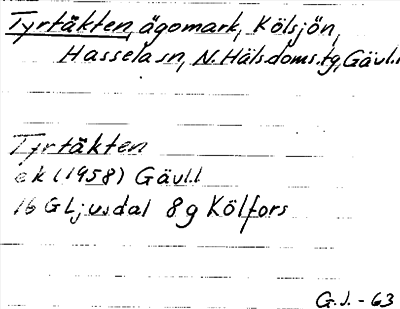 Tyrtäkten, ägomark, Kölsjön,
Hassela sn, N. Häls.doms.tg, Gävl.l
Tyrtäkten
ek (1958) Gävl.l
16 G Ljusdal 8g Kölfors
G.J. - 63